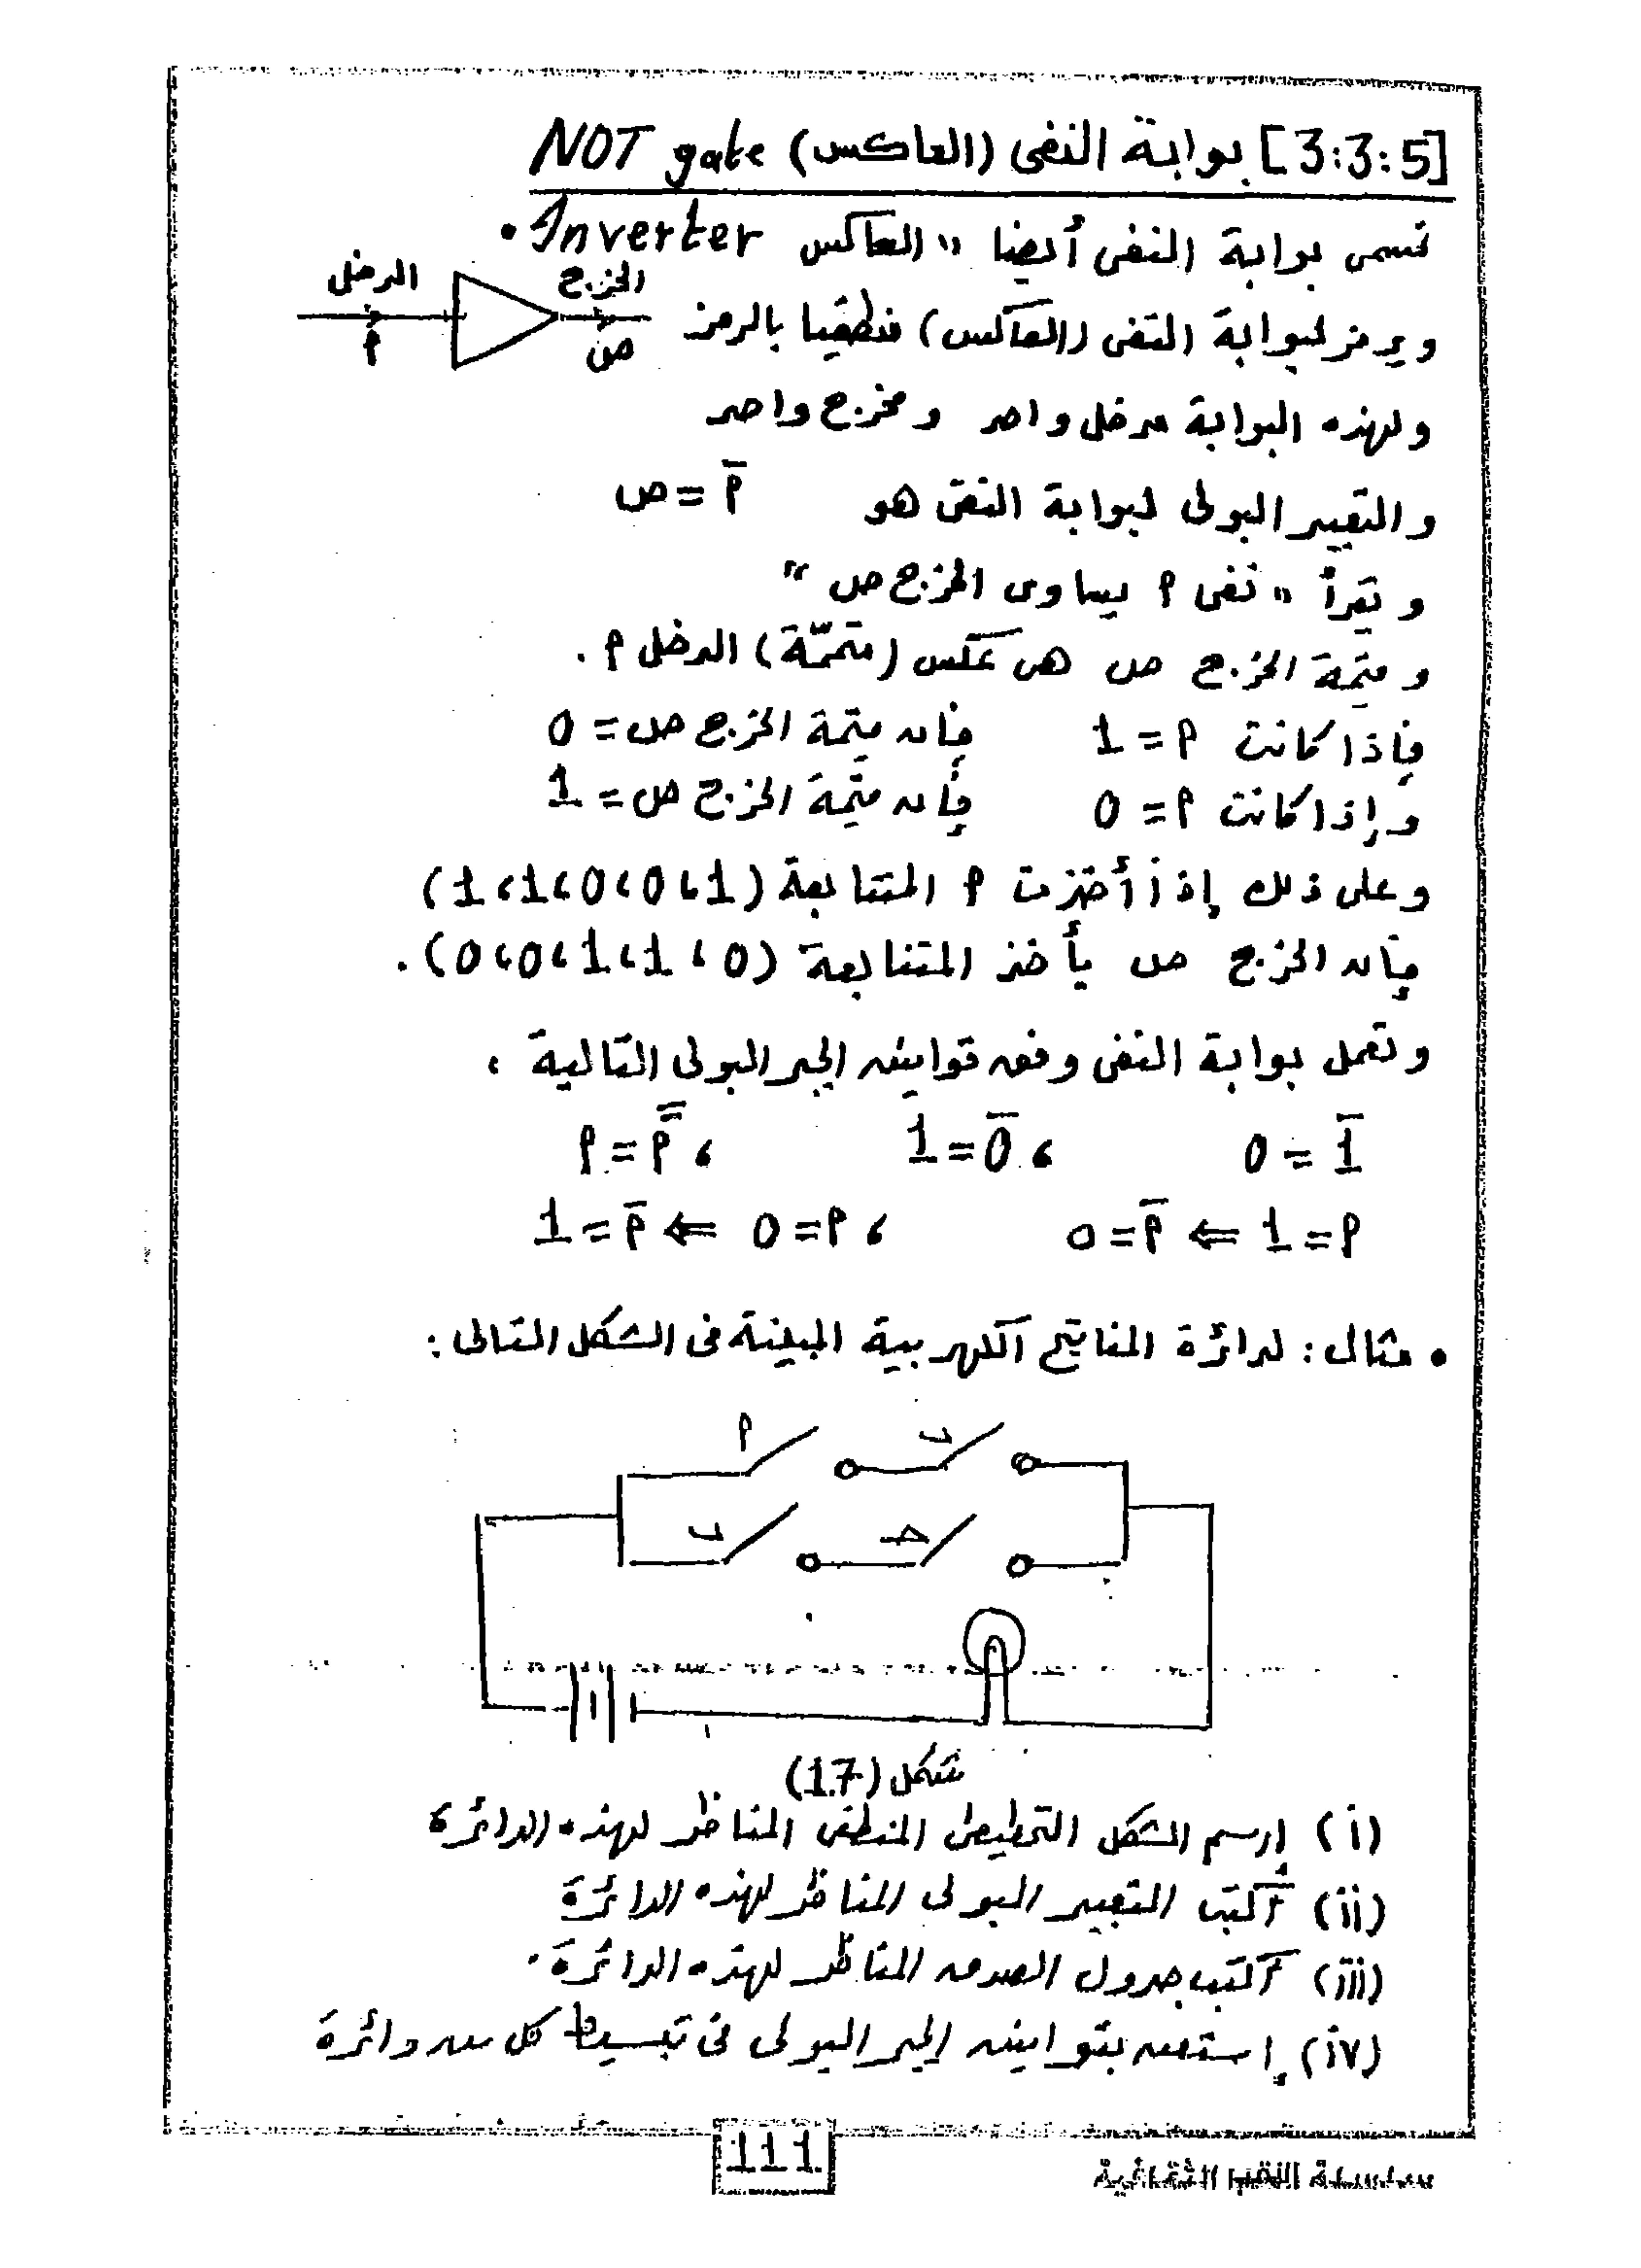 [3:3:5] بوابة النفى (العاكس) NOT gate
تسمى بوابة النفى أيضا " العاكس Inverter .
الدخل
الخرج
ويرمز لبوابة النفى (العاكس) منطقيا بالرمز
م
ص
ولهذه البوابة مدخل واحد ومخرج واحد
والتعبير البولى لبوابة النفى هو م̅ = ص
وتقرأ " نفى م يساوى الخرج ص "
وقيمة الخرج ص هى عكس (متممّة) الدخل م .
فإذا كانت م = 1 فإن قيمة الخرج ص = 0
وإذا كانت م = 0 فإن قيمة الخرج ص = 1
وعلى ذلك إذا أخذت م المتتابعة (1،0،0،1،1)
فإن الخرج ص يأخذ المتتابعة (0،1،1،0،0).
وتعمل بوابة النفى وفق قوانين الجبر البولى التالية ،
1̅ = 0 ، 0̅ = 1 ، م̿ = م
م = 1 ⇐ م̅ = 0 ، م = 0 ⇐ م̅ = 1
• مثال : لدائرة المفاتيح الكهربية المبينة فى الشكل التالى :
م
ب
ب
حـ
شكل (17)
(i) إرسم الشكل التخطيطى المنطقى المناظر لهذه الدائرة
(ii) أكتب التعبير البولى المناظر لهذه الدائرة
(iii) أكتب جدول الصدق المناظر لهذه الدائرة .
(iv) إستعن بقوانين الجبر البولى فى تبسيط كل من دائرة
111
سلسلة الفكر الثقافية